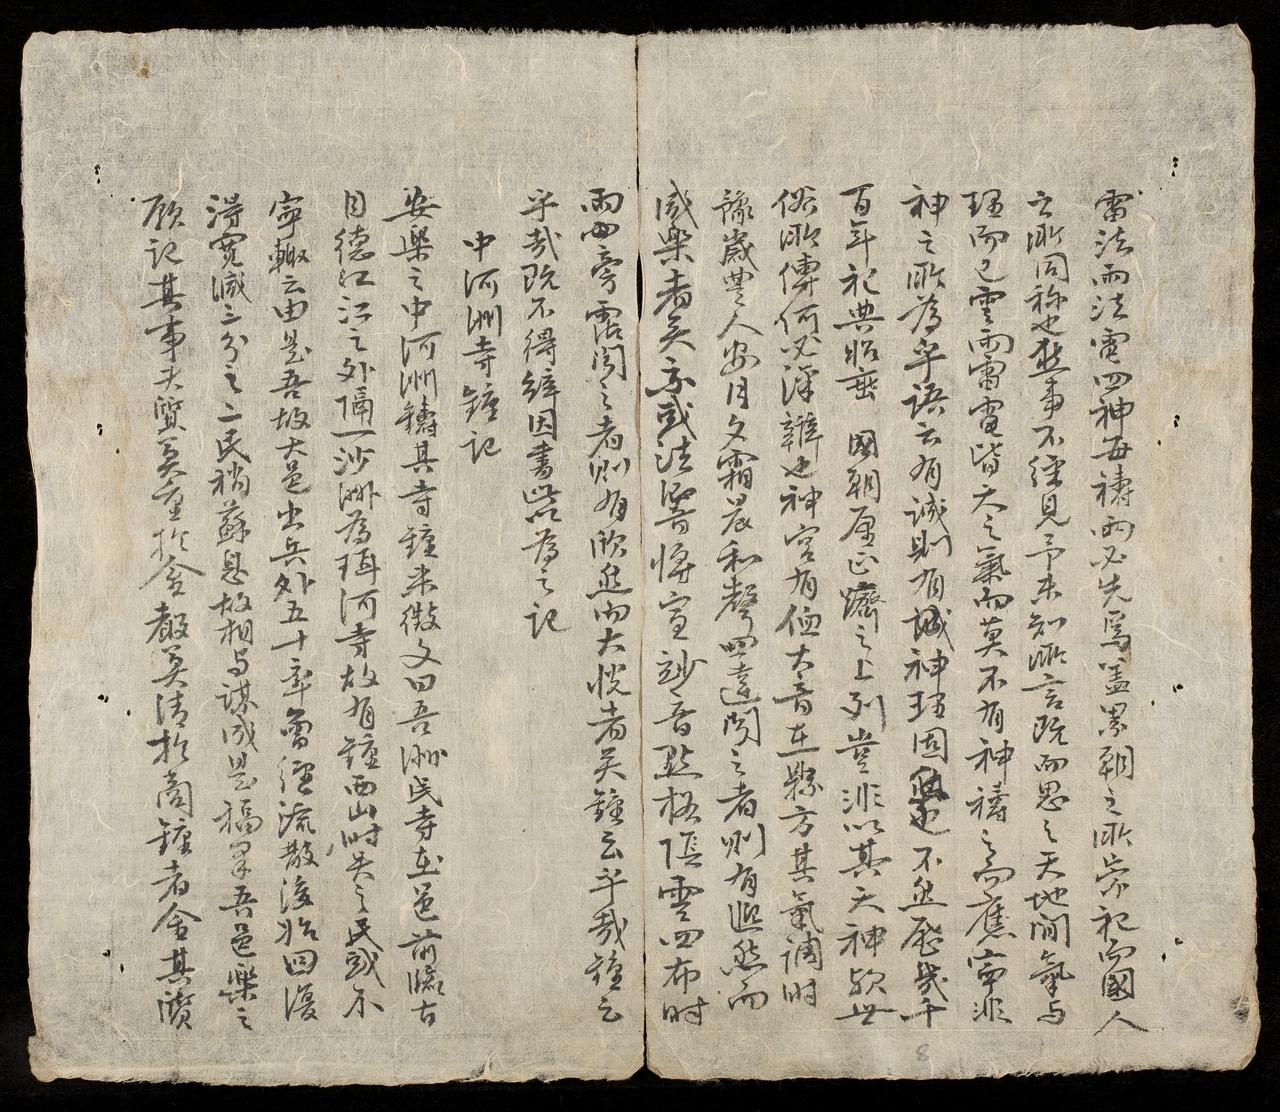 雷法雨法電四神每禱雨必先焉盖累朝之所崇祀而國人
之所同稱也然事不經見予未知所言既而思之天地間氣与
理而已雲雨雷電皆天之氣而莫不有神禱之而應寧非
神之所為乎語云有誠則有誠神理固然也不然歷幾千
百年祀典昭垂 國朝厘正躋之上列豈非以其天神歟世
俗所傳何必深辯也神宮有侐大音在懸方其氣調时
豫歲豐人安月夕霜晨和聲四達聞之者則有熙然而
咸樂者矣亦或法響悕宣玅音默格陰雲四布时
雨四霶霑聞之者則有欣然而大悅者矣鐘云乎哉鐘云
乎哉既不得辞因書此為之記
中河洲寺鐘記
安樂之中河洲鑄其寺鐘来徵文曰吾洲民寺在邑前臨古
目德江江之外隔一沙洲為珥河寺故有鐘西山时失之民或不
寧輙云由是吾故大邑出兵外五十率曾經流散後始回復
得寬減三分之二民稍蘇息故相与謀成是福果吾邑樂之
願記其事夫質莫重於金聲莫清於商鐘者金其質
8